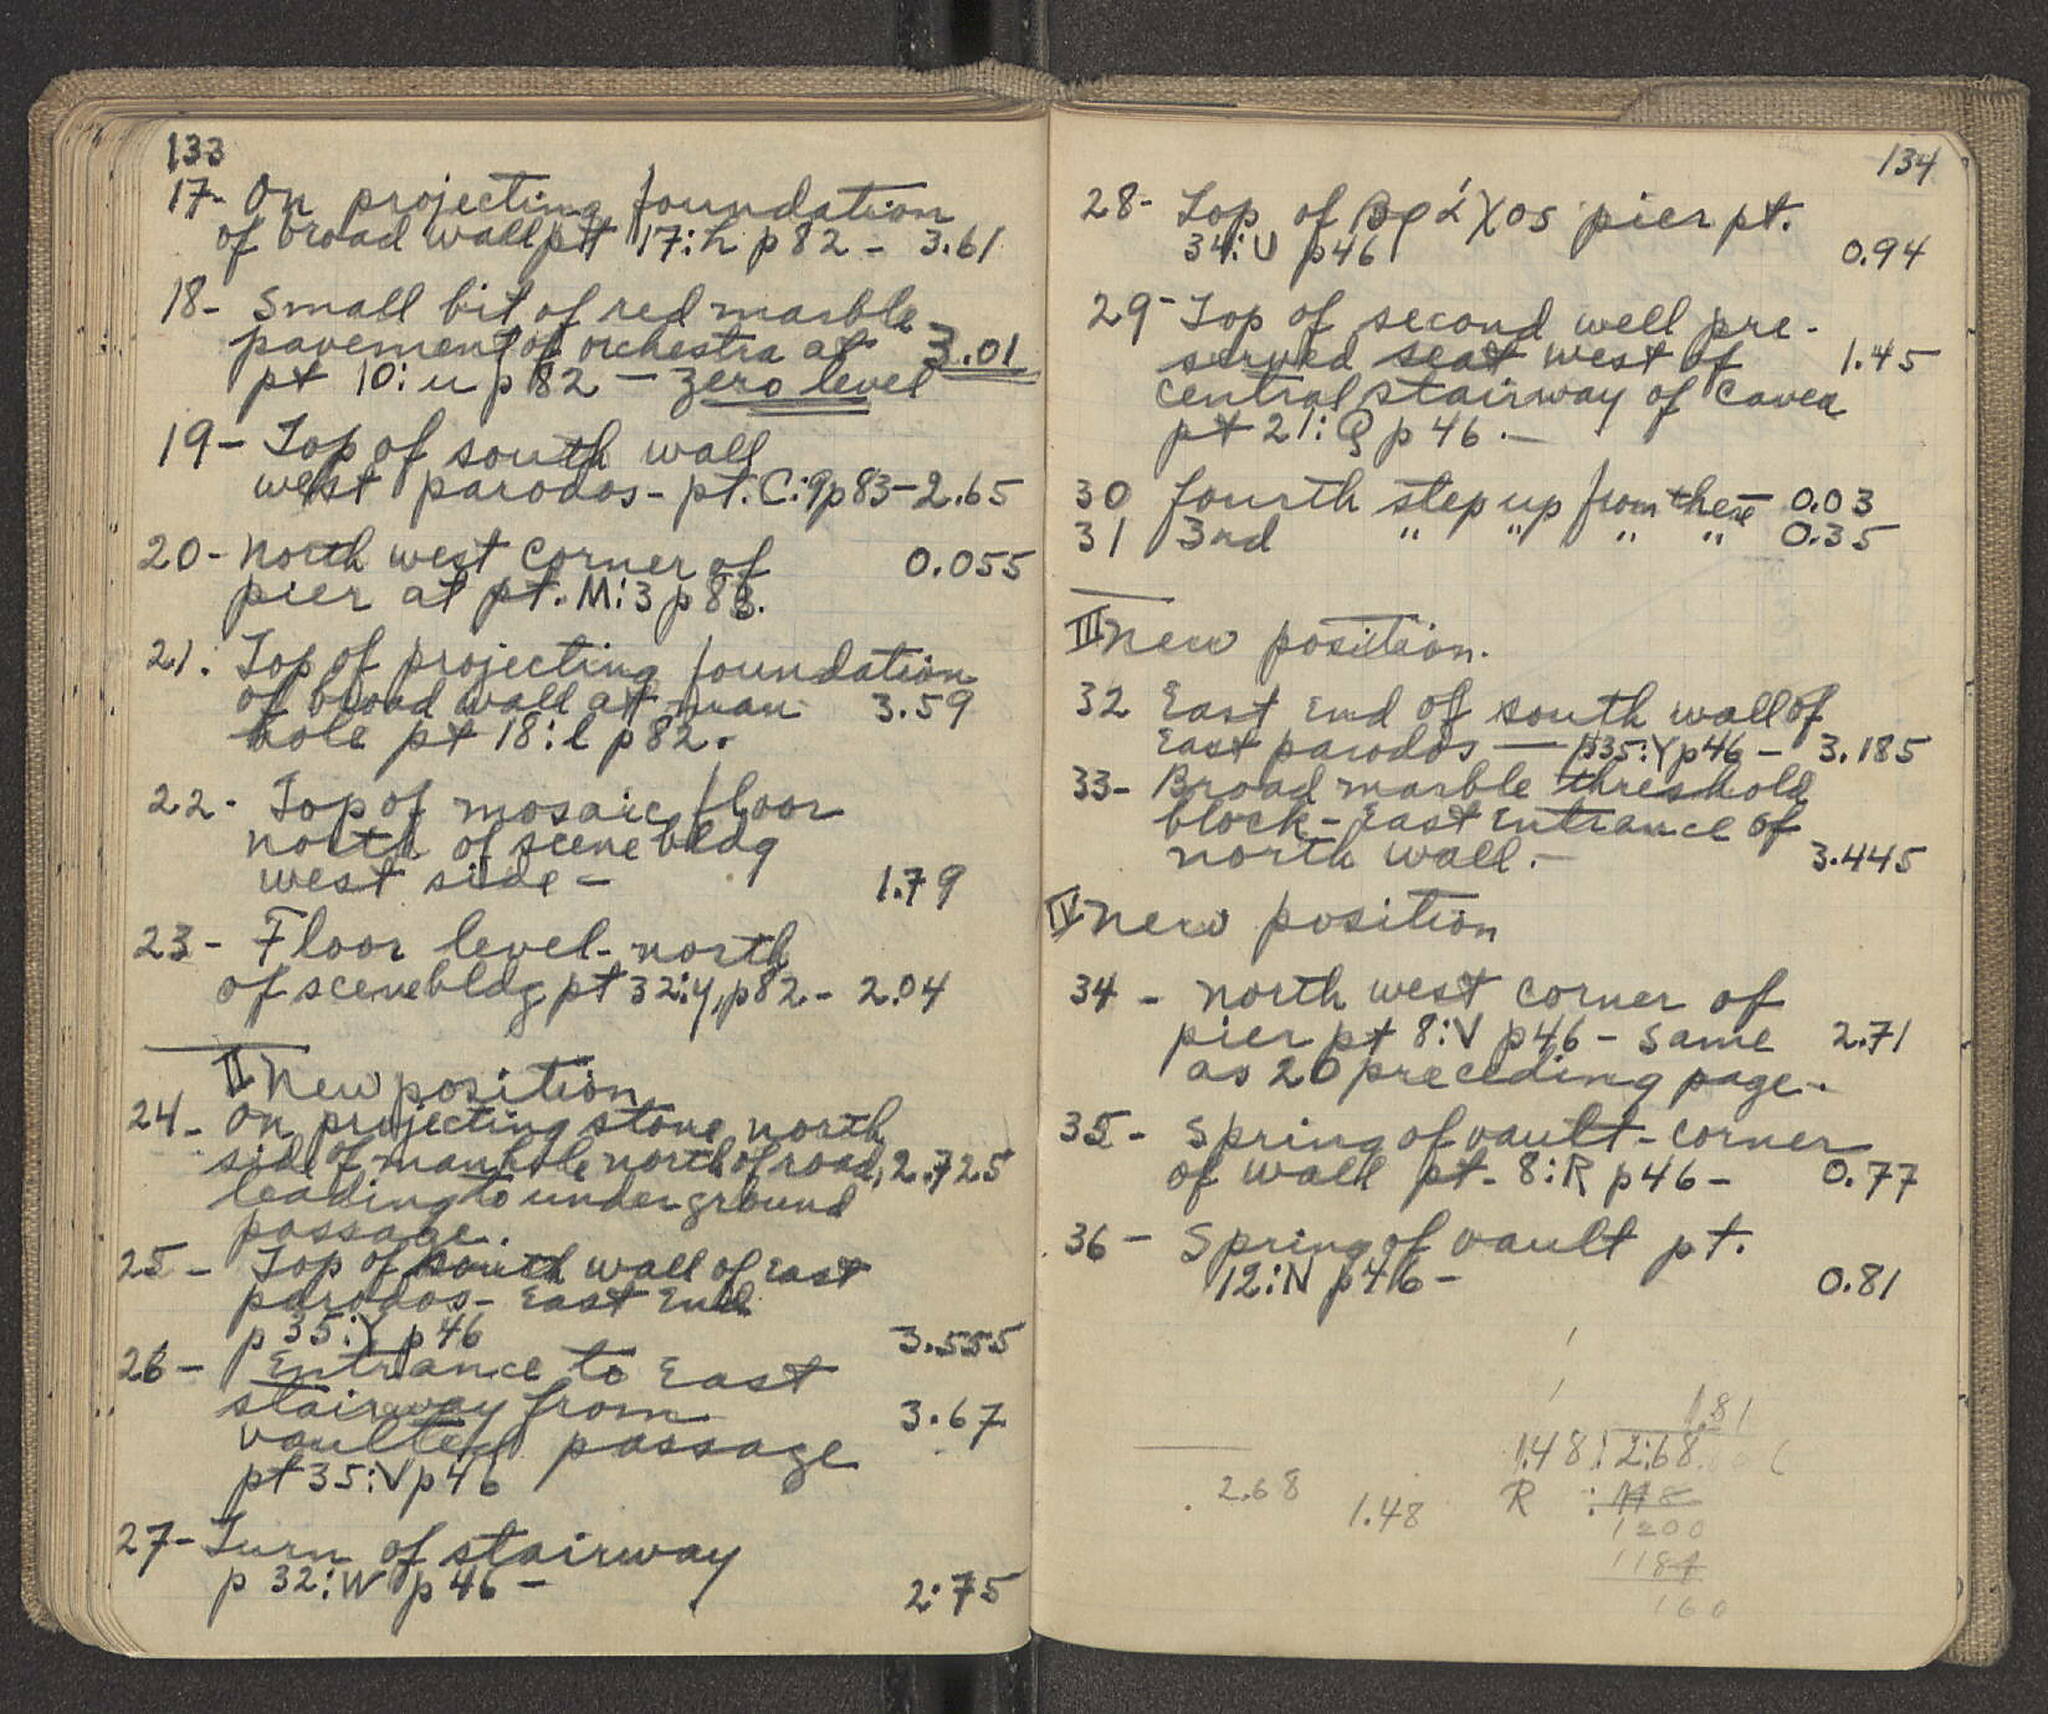 133
17- On projecting foundation
of broad wall pt 17:h p 82 - 3.61
18- Small bit of red marble
pavement of orchestra at 3.01
pt 10:u p 82 — zero level
19- Top of south wall
west parodos - pt. C:9 p 83 - 2.65
20- North west corner of 0.055
pier at pt. M:3 p 83.
21. Top of projecting foundation
of broad wall at man 3.59
hole pt 18:l p 82.
22- Top of mosaic floor
north of scene bldg
west side - 1.79
23- Floor level - north
of scene bldg pt 32:y, p 82. - 2.04
II New position
24- On projecting stone north
side of manhole north of road, 2.725
leading to underground
passage.
25- Top of south wall of East
parodos - East End
p 35:Y p 46 3.555
26- Entrance to East
stairway from 3.67
vaulted passage
pt 35:V p 46
27- Turn of stairway
p 32:W p 46 - 2.75
134
28- Top of Βράχος pier pt.
34:U p 46 0.94
29- Top of second well pre-
served seat west of 1.45
central stairway of Cavea
pt 21:Q p 46. -
30 Fourth step up from these - 0.03
31 3rd " " " " 0.35
III New position.
32 East End of south wall of
East parodos — p 35:Y p 46 - 3.185
33- Broad marble threshold
block - East Entrance of
north wall. - 3.445
IV New position
34- North west corner of
pier pt 8:V p 46 - Same 2.71
as 20 preceding page -.
35- Spring of vault - corner
of wall pt. 8:R p 46 - 0.77
36- Spring of vault pt.
12:N p 46 - 0.81
1.81
1.48 : 2.68
2.68 1.48 R : 148
1200
1184
160